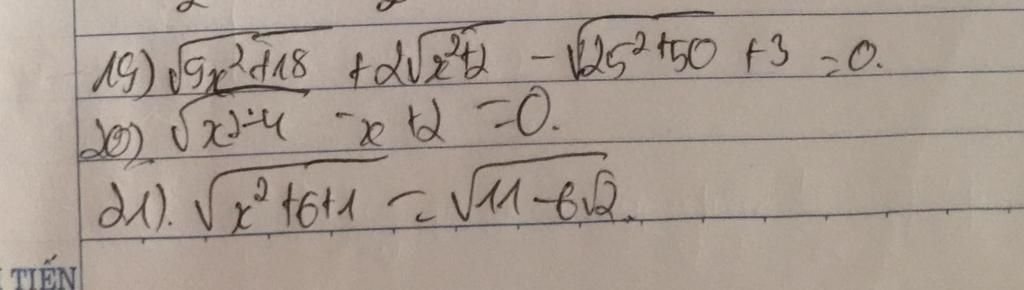 19) √9x²+18 + 2√x²+2 - √25²+50 + 3 = 0.
20) √x²-4 - x + 2 = 0.
21). √x²+6+1 = √11-6√2.
TIẾN